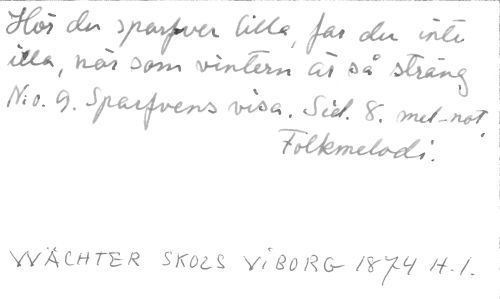 Hör du sparfver lilla, far du inte
illa, när som vintern är så sträng
N:o. 9. Sparfvens visa. Sid. 8. mel-not.
Folkmelodi.
WÄCHTER SKOLS VIBORG 1874 H.1.